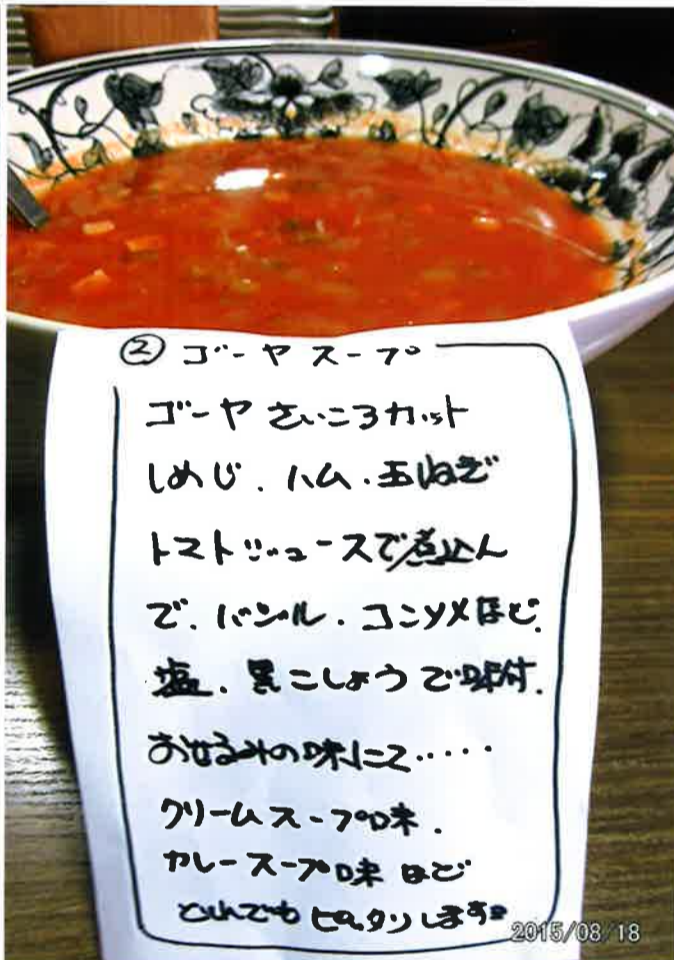 ② ゴーヤスープ
ゴーヤ さいころカット
しめじ、ハム、玉ねぎ
トマトジュースで煮込ん
で、バジル、コンソメなど、
塩、黒こしょうで味付、
お好みの味にて・・・・・
クリームスープ味、
カレースープ味など
とれでもピッタリします。
2015/08/18